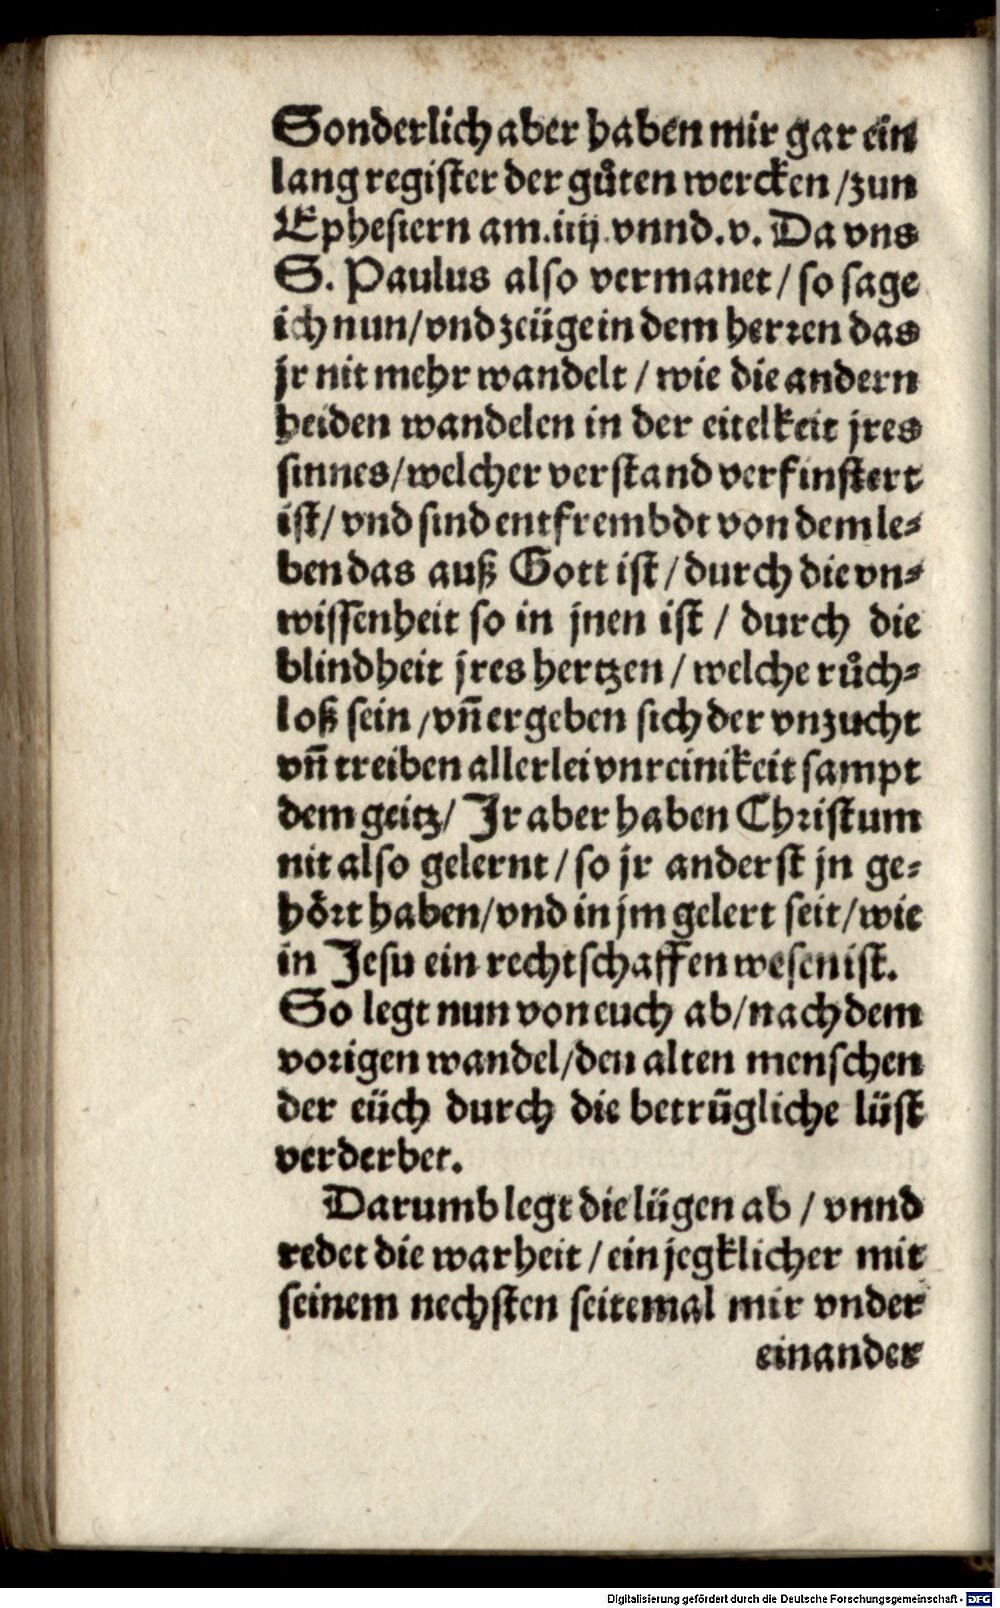 Sonderlich aber haben mir gar ein
lang register der gůten wercken / zun
Ephesiern am.iiij. vnnd.v. Da vns
S. Paulus also vermanet / so sage
ich nun / vnd zeüge in dem herren das
jr nit mehr wandelt / wie die andern
heiden wandelen in der eitelkeit jres
sinnes / welcher verstand verfinstert
ist / vnd sind entfrembdt von dem le⸗
ben das auß Gott ist / durch die vn⸗
wissenheit so in jnen ist / durch die
blindheit jres hertzen / welche růch⸗
loß sein / vñ ergeben sich der vnzucht
vñ treiben allerlei vnreinikeit sampt
dem geitz / Jr aber haben Christum
nit also gelernt / so jr anderst jn ge⸗
hört haben / vnd in jm gelert seit / wie
in Jesu ein rechtschaffen wesen ist.
So legt nun von euch ab / nach dem
vorigen wandel / den alten menschen
der eüch durch die betrügliche lüst
verderbet.
Darumb legt die lügen ab / vnnd
redet die warheit / ein jegklicher mit
seinem nechsten seitemal mir vnder
einander
Digitalisierung gefördert durch die Deutsche Forschungsgemeinschaft - DFG